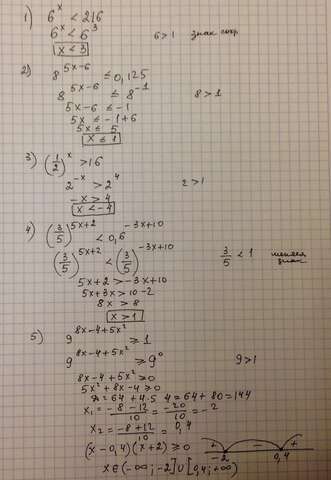 1) 6^x < 216
6^x < 6^3 6>1 знак сохр.
x < 3
2) 8^(5x-6) ≤ 0,125
8^(5x-6) ≤ 8^(-1) 8 > 1
5x-6 ≤ -1
5x ≤ -1+6
5x ≤ 5
x ≤ 1
3) (1/2)^x > 16
2^(-x) > 2^4 2 > 1
-x > 4
x < -4
4) (3/5)^(5x+2) < 0,6^(-3x+10)
(3/5)^(5x+2) < (3/5)^(-3x+10) 3/5 < 1 меняем знак
5x+2 > -3x+10
5x+3x > 10-2
8x > 8
x > 1
5) 9^(8x-4+5x²) ≥ 1
9^(8x-4+5x²) ≥ 9^0 9>1
8x-4+5x² ≥ 0
5x²+8x-4 ≥ 0
D = 64+4·5·4 = 64+80 = 144
x₁ = (-8-12)/10 = -20/10 = -2
x₂ = (-8+12)/10 = 0,4
(x-0,4)(x+2) ≥ 0 + - + -2 0,4
x∈(-∞;-2]∪[0,4;+∞)